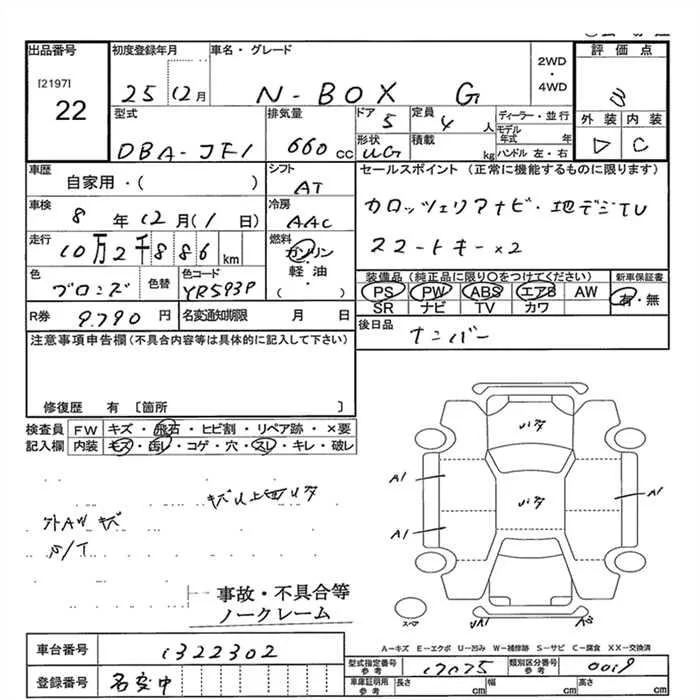 出品番号
[2197]
22
初度登録年月
25 12月
車名・グレード
N-BOX G
2WD
・
4WD
評価点
3
外装 内装
D C
型式
DBA-JF1
排気量
660 cc
ドア 5
定員 4 人
ディーラー・並行
モデル年式 年
ハンドル 左・右
形状 UG
積載 kg
車歴
自家用・( )
シフト
AT
セールスポイント (正常に機能するものに限ります)
カロッツェリアナビ・地デジTV
スマートキー×2
車検
8年12月(1日)
冷房
AAC
走行
10万2千886km
燃料
ガソリン
・
軽油
・
( )
色
ブロンズ
色替
色コード
YR593P
装備品 (純正品に限り〇をつけてください)
PS PW ABS エアB AW
SR ナビ TV カワ
新車保証書
有・無
R券
9.790円
名変通知期限 月 日
後日品
ナンバー
注意事項申告欄(不具合内容等は具体的に記入して下さい)
修復歴 有 〔箇所 〕
検査員
記入欄
FW キズ・飛石・ヒビ割・リペア跡・×要
内装 キズ・汚レ・コゲ・穴・スレ・キレ・破レ
外AWキズ
S/T
事故・不具合等
ノークレーム
A1
A1
A1
スペア
A-キズ E-エクボ U-凹み W-補修跡 S-サビ C-腐食 XX-交換済
車台番号
1322302
登録番号
名変中
型式指定番号
参考
17075
類別区分番号
参考
0019
車庫証明用
参考
長さ cm
幅 cm
高さ cm